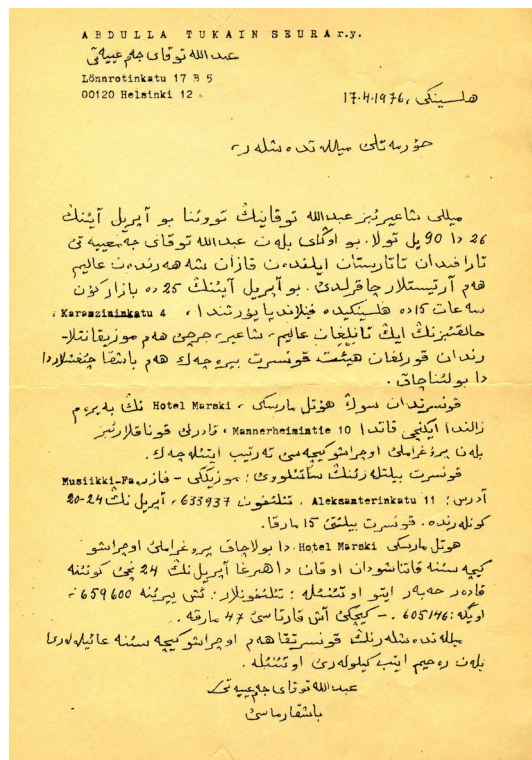 ABDULLA TUKAIN SEURA r.y.
عبدالله توقاى جەمعییەتى
Lönnrotinkatu 17 B 5
00120 Helsinki 12
هلسینكى، 17.4.1976
حۆرمەتلى میللەتدەشلەر،
میللى شاعیرىبز عبدالله توقاینىڭ تووئنا بو آپریل آیىنىڭ
26 دا 90 یل تولا. بو اوڭاى بلەن عبدالله توقاى جەمعییەتى
تارافىدان تاتارستان ایلىندەن قازان شەهەرندەن عالیم
هەم آرتیستلار چاقرلدى. بو آپریل آیىنىڭ 25 دە بازار كۆن
سەعات 15 دە هلسینكیدە فینلاندیا یۇرتىندا، Karamzininkatu 4
حالقىبزنىڭ ایڭ تانىلغان عالیم، شاعیر، جرچى هەم موزیقانتلا-
رىندان قورلغان هیئت قونسرت بیرەچەك هەم باشقا چىغشلاردا
دا بولىناچاق.
قونسرتدان سوڭ هۆتل مارسكى، Hotel Marski نىڭ بەیرەم
زالىندا ایكنچى قاتدا Mannerheimintie 10، قادرلى قوناقلارىبز
بلەن پروغراملى اوچراشو كیچەسى تەرتیب ایتىلەچەك.
قونسرت بیلتلەرىنىڭ ساتىلووى: موزیككى - فازر Musiikki-Fa
آدرس: Aleksanterinkatu 11، تىلىفون 633937، آپریل نىڭ 20-24
كونلەرندە. قونسرت بیلتى 15 مارقا.
هوتل مارسكى Hotel Marski دا بولاچاق پروغراملى اوچراشو
كیچەسىنە قاتناشودان اوقان داهىرغا آپریل نىڭ 24 نچى كونىنە
قادەر حەبەر ایتو اوتىنلە: تىلىفونلار: ئش یىرىنە 659600 -
اویگە: 605146. - كیچكى آش قارتاسى 47 مارقە.
میللەتدەشلەرنىڭ قونسرتقا هەم اوچراشو كیچەسىنە عائیلەلەرى
بلەن رەحیم ایتىب كیلولەرى اوتىنلە.
عبدالله توقاى جەمعییەتى
باشقارماسى